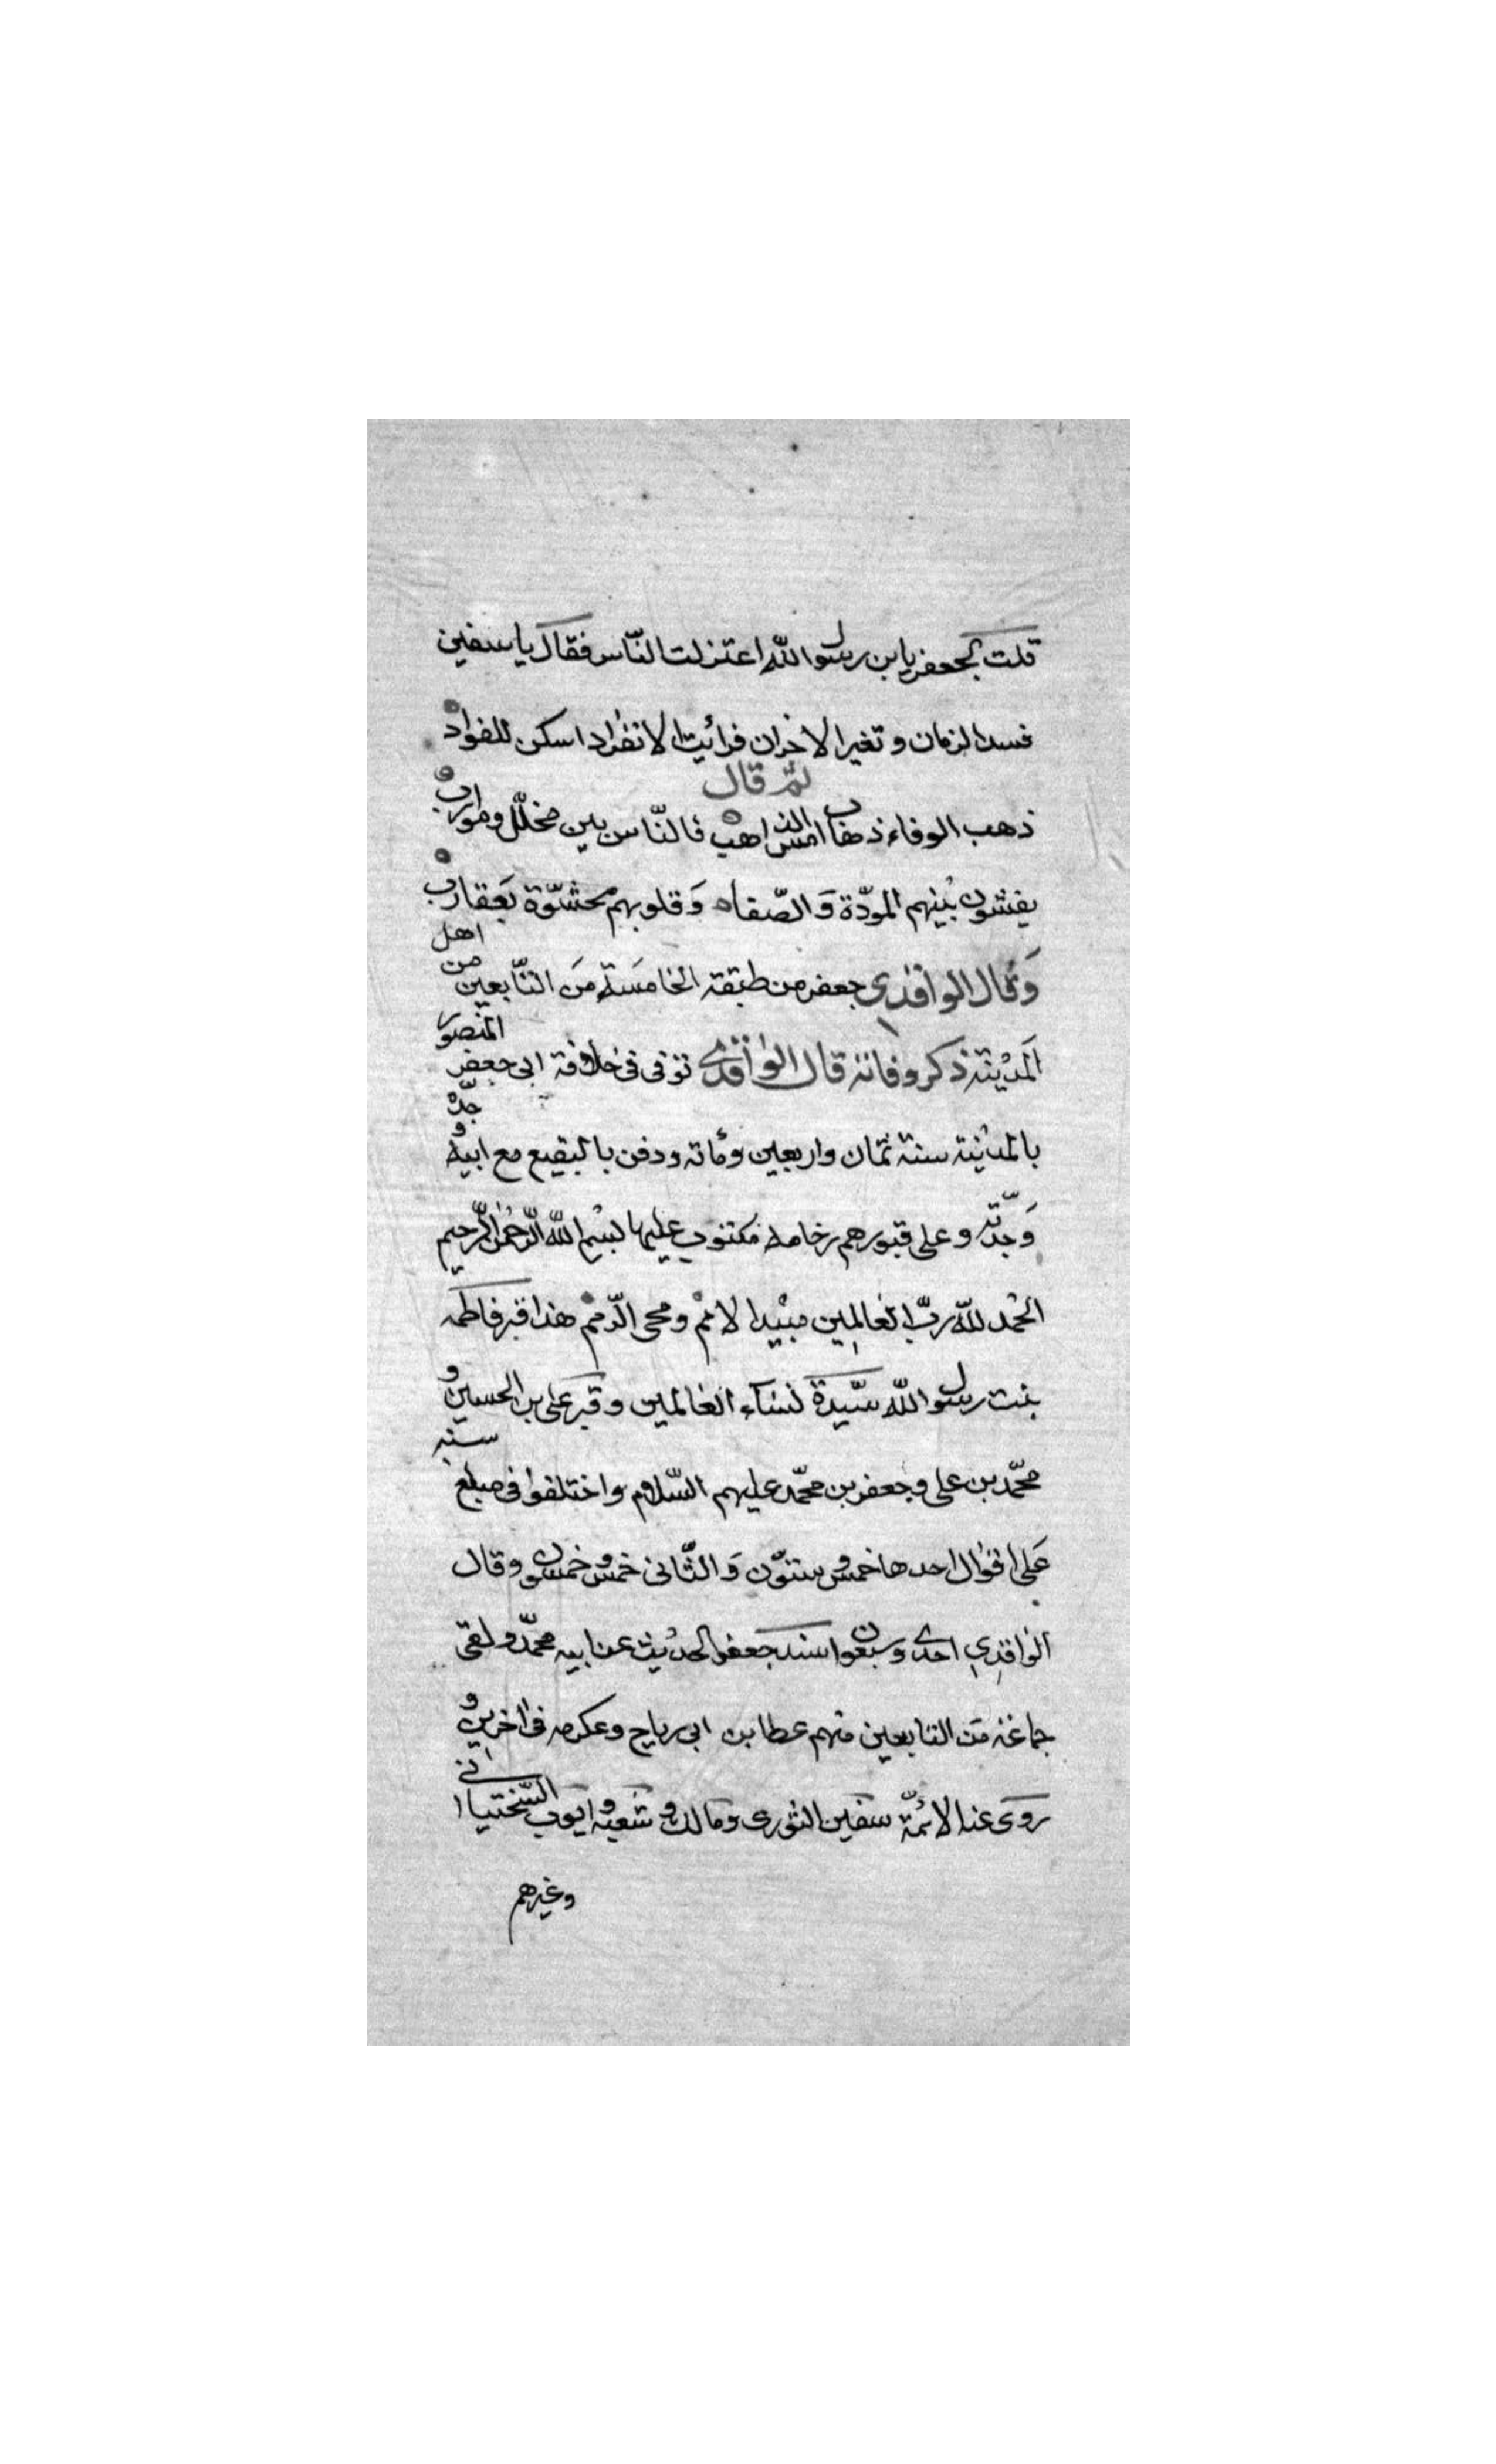 قلت لجعفر يا بن رسول الله اعتزلت الناس فقال يا سفين
فسد الزمان و تغير الاخوان فرائيت الانفراد اسكن للفواد
ثم قال
ذهب الوفاء ذهاب امس الذاهب فالناس بين مخلل و موارب
يفشون بينهم المودّة وَ الصّفاه وَ قلوبهم محشوّة بعقارب
وَ قال الواقدي جعفر من طبقة الخامَسة مَن التّابعين من اهل
المَدينة ذكر وفاته قال الواقدي توفى فى خلافة ابى جعفر المنصور
بالمدينة سنة ثمان و اربعين و مائة و دفن بالبقيع مع ابيه و جدّه
وَ جدّته و على قبورهم رخامة مكتوب عليها بسم الله الرّحمن الرّحيم
الحمد للّه ربّ العالمين مبيد الامم و محى الرّمم هذا قبر فاطمه
بنت رسول اللّه سيّدة نساء العالمين و قبر على بن الحسين و
محمّد بن على و جعفر بن محمّد عليهم السّلام و اختلفوا فى مبلغ سنه
عَلى اقوال احدها خمس و ستّون وَ الثّانى خمس و خمسون و قال
الواقدي احدى و سبعون اسند جعفر الحديث عن ابيه محمّد و لقى
جماعة مَن التابعين منهم عطا بن ابى رباح و عكرمه فى اخرين و
روى عنه الائمّة سفين الثورى و مالك و شعبه و ايوب السّختيانى
و غيرهم